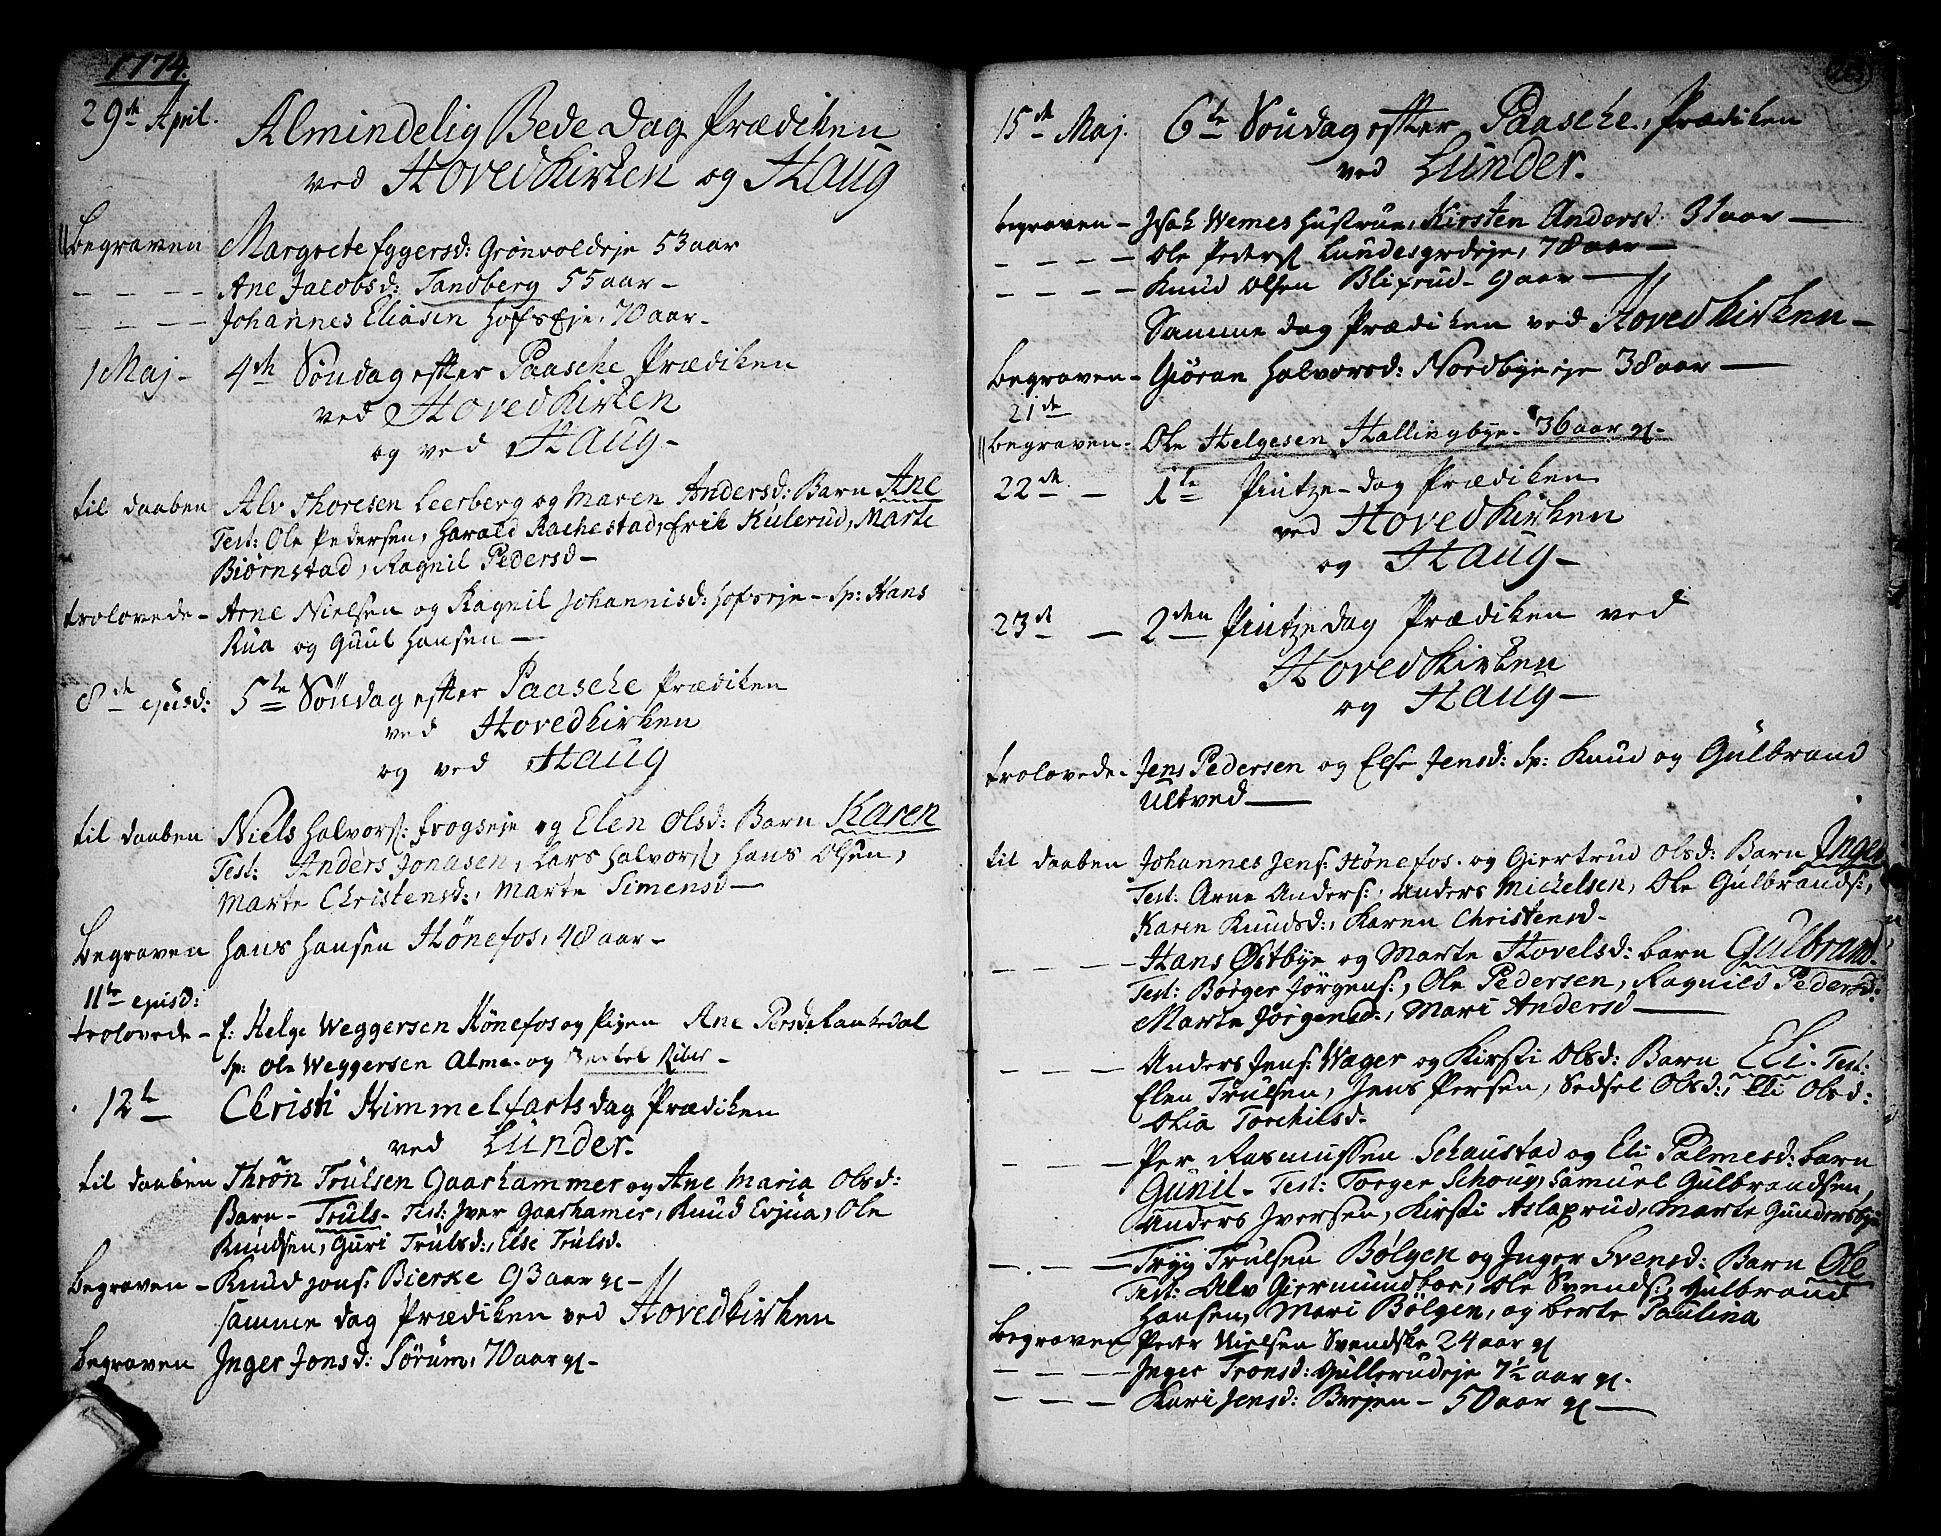 1774.
29de April. Almindelig Bede Dag Prædiken
ved Hovedkirken og Haug
Begraven Margrete Eggersd: Grönvoldeje 53 aar
— — — Ane Jacobsd: Tandberg 55 aar –
— — — Johannes Eliasen Hofs Eje, 70 aar –
1 Maj – 4de Söndag efter Paasche Prædiken
ved Hovedkirken
og ved Haug –
til daaben Alv Thoresen Leerberg og Maren Andersd: Barn Ane
Test: Ole Pedersen, Harald Rachestad, Erik Kulerud, Marte
Biörnstad, Ragnil Pedersd –
trolovede – Arne Nielsen og Ragnil Johannisd: Hofseje – Sp: Hans
Rua og Guul Hansen —
8de ejusd: 5te Söndag efter Paasche Prædiken
ved Hovedkirken
og ved Haug
til daaben Niels Halvors: Frogseje og Elen Olsd: Barn Karen
Test: Anders Jonasen, Lars Halvors, Hans Olsen,
Marte Christensd:, Marte Simensd —
Begraven Hans Hansen Hönefos, 48 aar –
11te ejusd:
trolovede – E: Helge Weggersen Hönefos og Pigen Ane Persd
Sp: Ole Weggersen Alme – og
12te Christi Himmelfartsdag Prædiken
ved Lunder.
til daaben Thrön Trulsen Gaarhammer og Ane Maria Olsd:
Barn – Truls – Test: Jver Gaarhamer, Knud Evjua, Ole
Knudsen, Guri Trulsd:, Else Trulsd.
Begraven – Knud Jons: Bierke 93 aar gl –
samme dag Prædiken ved Hovedkirken
Begraven Jnger Jonsd: Sörum, 70 aar gl –
15de Maj. 6te Söndag efter Paasche, Prædiken
ved Lunder.
Begraven – Jsak Wemes Hustrue, Kirsten Andersd: 31 aar —
— — — Ole Peders Lundesgrdeje, 78 aar —
— — — Knud Olsen Blixrud – 9 aar —
Samme dag Prædiken ved Hovedkirken –
Begraven – Giöran Halvorsd: Nordbyeje 38 aar —
21de
Begraven – Ole Helgesen Hallingbye – 36 aar gl –
22de – 1te Pintze-dag Prædiken
ved Hovedkirken
og Haug –
23de — 2den Pintzedag Prædiken ved
Hovedkirken
og Haug –
trolovede – Jens Pedersen og Else Jensd: Sp: Knud og Gulbrand
Ultved —
til daaben Johannes Jens: Hönefos – og Giertrud Olsd: Barn Jnger
Test: Arne Anders:, Anders Michelsen, Ole Gulbrands:,
Karen Knudsd:, Karen Christensd –
— — — Hans Østbye og Marte Hovelsd: barn Gulbrand –
Test: Börger Jörgens:, Ole Pedersen, Ragnild Pedersd:
Marte Jörgensd:, Mari Andersd —
— — — Anders Jens: Wager og Kirsti Olsd: Barn Eli – Test:
Elen Trulsen, Jens Persen, Sedsel Olsd:, Eli Olsd:
Olia Torchilsd.
— — — Per Rasmussen Schaustad og Eli Palmesd: barn
Gunil – Test: Torger Schoug, Samuel Gulbrandsen,
Anders Jversen, Kirsti Aslaxrud, Marte Gundersbye
— — — Tryg Trulsen Bölgen og Jnger Svensd: Barn Ole
Test: Alv Giermundboe, Ole Svends:, Gulbrand
Hansen, Mari Bölgen, og berte Paulina
Begraven Peder Nielsen Svendske 24 aar gl
— — — Jnger Tronsd: Gullerudeje 7½ aar gl –
— — — Kari Jensd: Brejen – 50 aar gl —